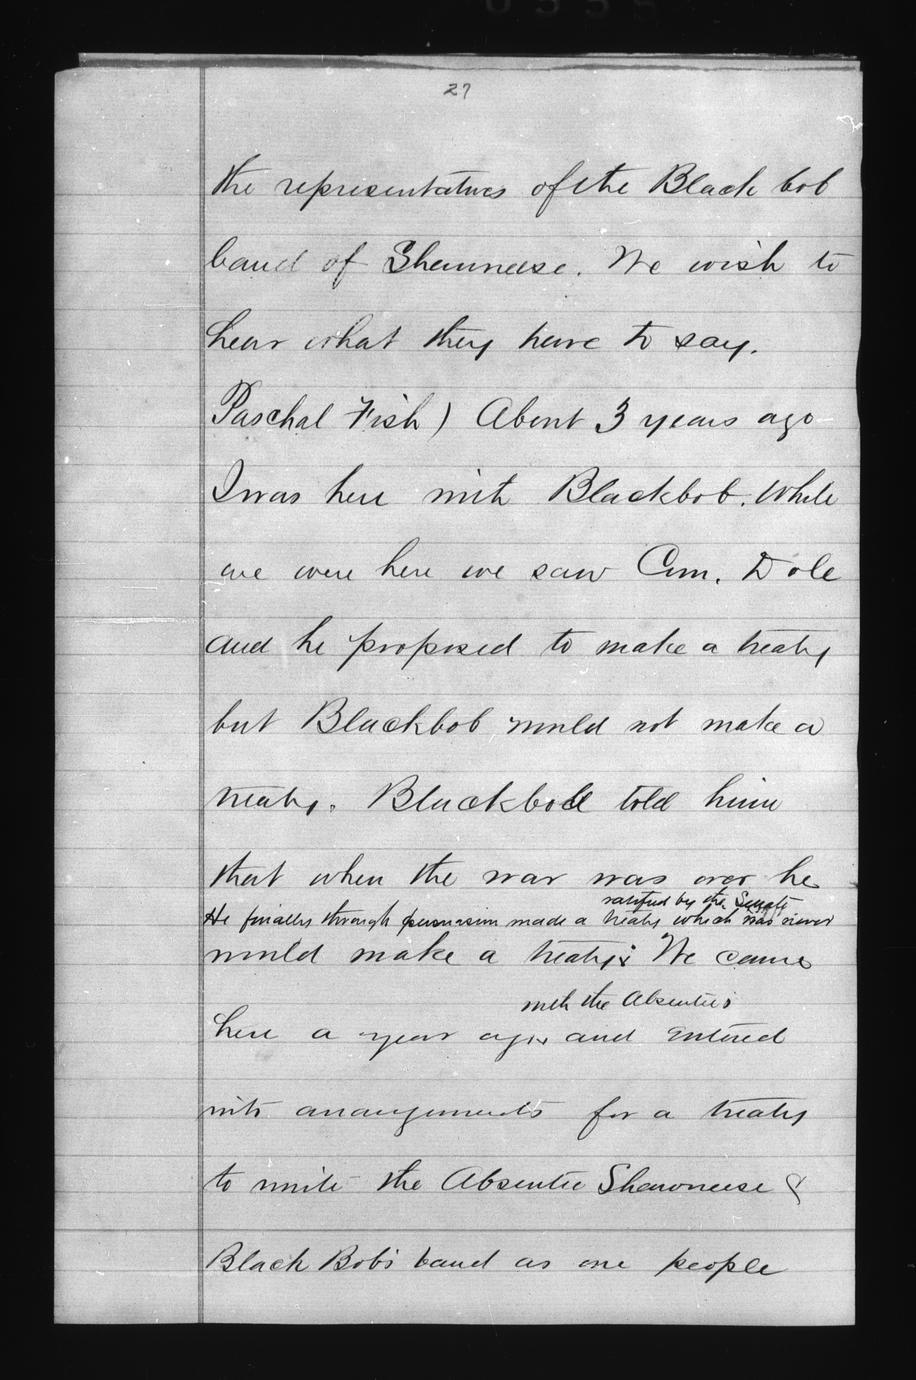 27
the representatives of the Black bob
band of Shawneese. We wish to
hear what they have to say.
Paschal Fish) About 3 years ago
I was here with Blackbob. While
we were here we saw Com. Dole
and he proposed to make a treaty
but Blackbob would not make a
treaty. Blackbob told him
that when the war was over he
ratified by the Senate
He finally through persuasion made a treaty which was never
would make a treaty. We came
with the Absentees
here a year ago, and entered
into arrangements for a treaty
to unite the Absentee Shawneese &
Black Bob's band as one people